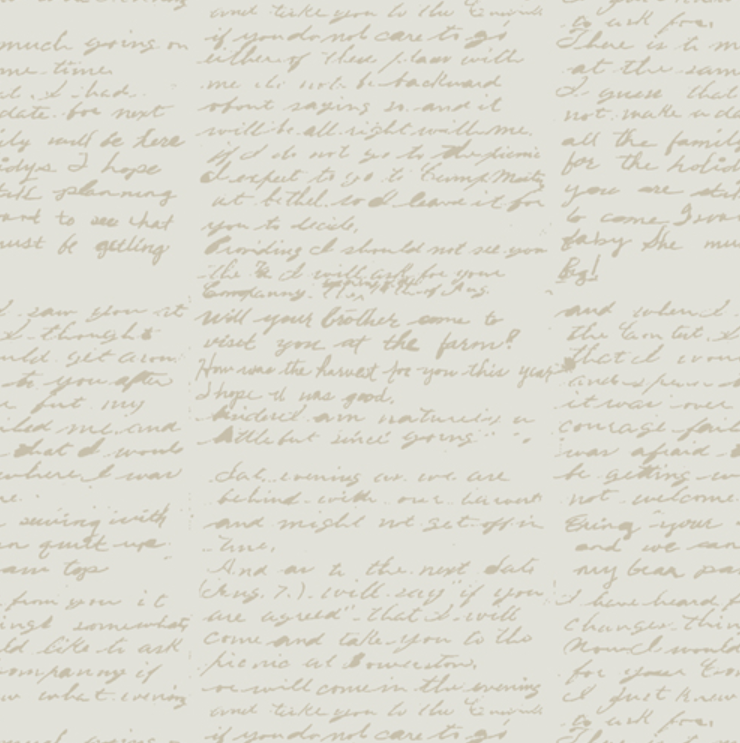 much going on
me time.
at I had
date for next
ily will be here
idys I hope
still planning
ant to see what
must be getting
I saw you it
I thought
uld get acom
to you after
e but my
iled me and
that I would
where I was
ne.
swing with
n quilt up
am top
from you it
ings somewhat
ld like to ask
company if
w what evening
much going on
and take you to the
if you do not care to go
either of these places with
me do not be backward
about saying so and it
will be all right with me.
if I do not go to the picnic
I expect to go to Camp Meeting
at bethel so I leave it for
you to decide.
Providing I should not see you
the I will ask for your
Company. of Aug.
Will your brother come to
visit you at the farm?
How was the harvest for you this year
I hope it was good.
am naturely a
little but since going
Sat. evening as we are
behind with our
and might not get off in
time.
And as to the next date
(Aug. 7.) will say "if you
are agreed" that I will
come and take you to the
picnic at Bowerston.
or will come in the evening
and take you to the
if you do not care to go
to ask for.
There is to m
at the sam
I guess that
not make a da
all the family
for the holid
you are stil
to come I wa
baby She mu
big!
and when I
the I
that I wou
it was over
courage fail
was afraid
be getting
not welcome.
Bring your
and we can
my bear pa
I have heard f
changes thin
Now I would
for your Com
I just knew
to ask for.
There is to m